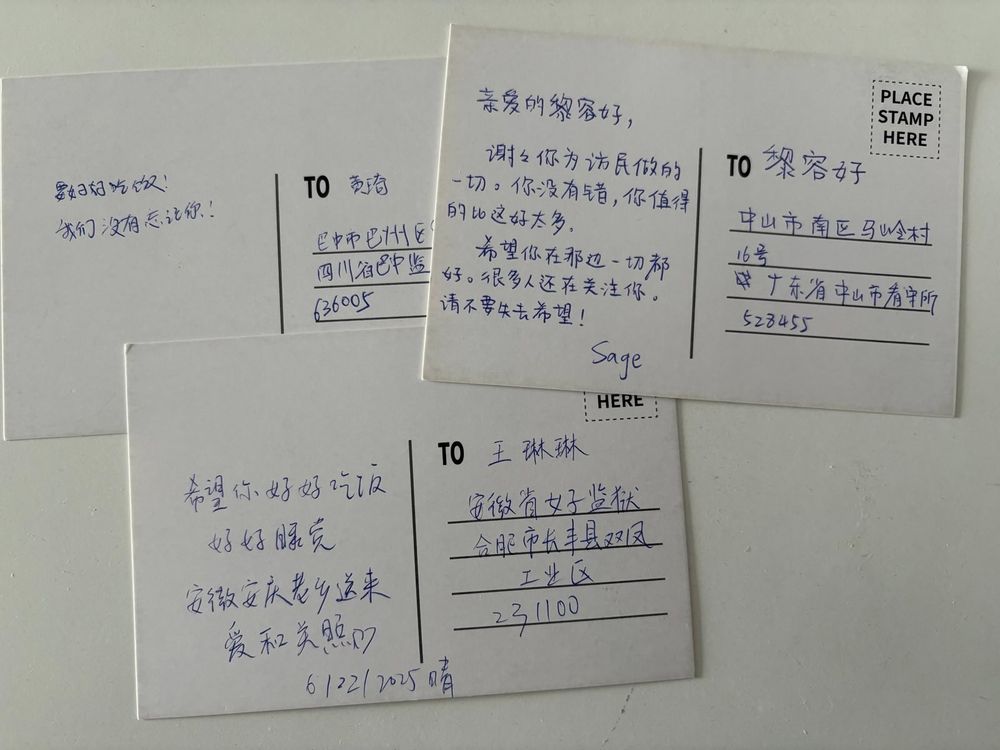 要好好吃饭!
我们没有忘记你!
TO 黄琦
巴中市巴州区
四川省巴中监
636005
亲爱的黎容好,
谢々你为访民做的
一切。你没有错,你值得
的比这好太多。
希望你在那边一切都
好。很多人还在关注你。
请不要失去希望!
Sage
PLACE
STAMP
HERE
TO 黎容好
中山市南区马岭村
16号
广东省中山市看守所
528455
希望你好好吃饭
好好睡觉
安徽安庆老乡送来
爱和关照
6/22/2025 晴
HERE
TO 王琳琳
安徽省女子监狱
合肥市长丰县双凤
工业区
231100